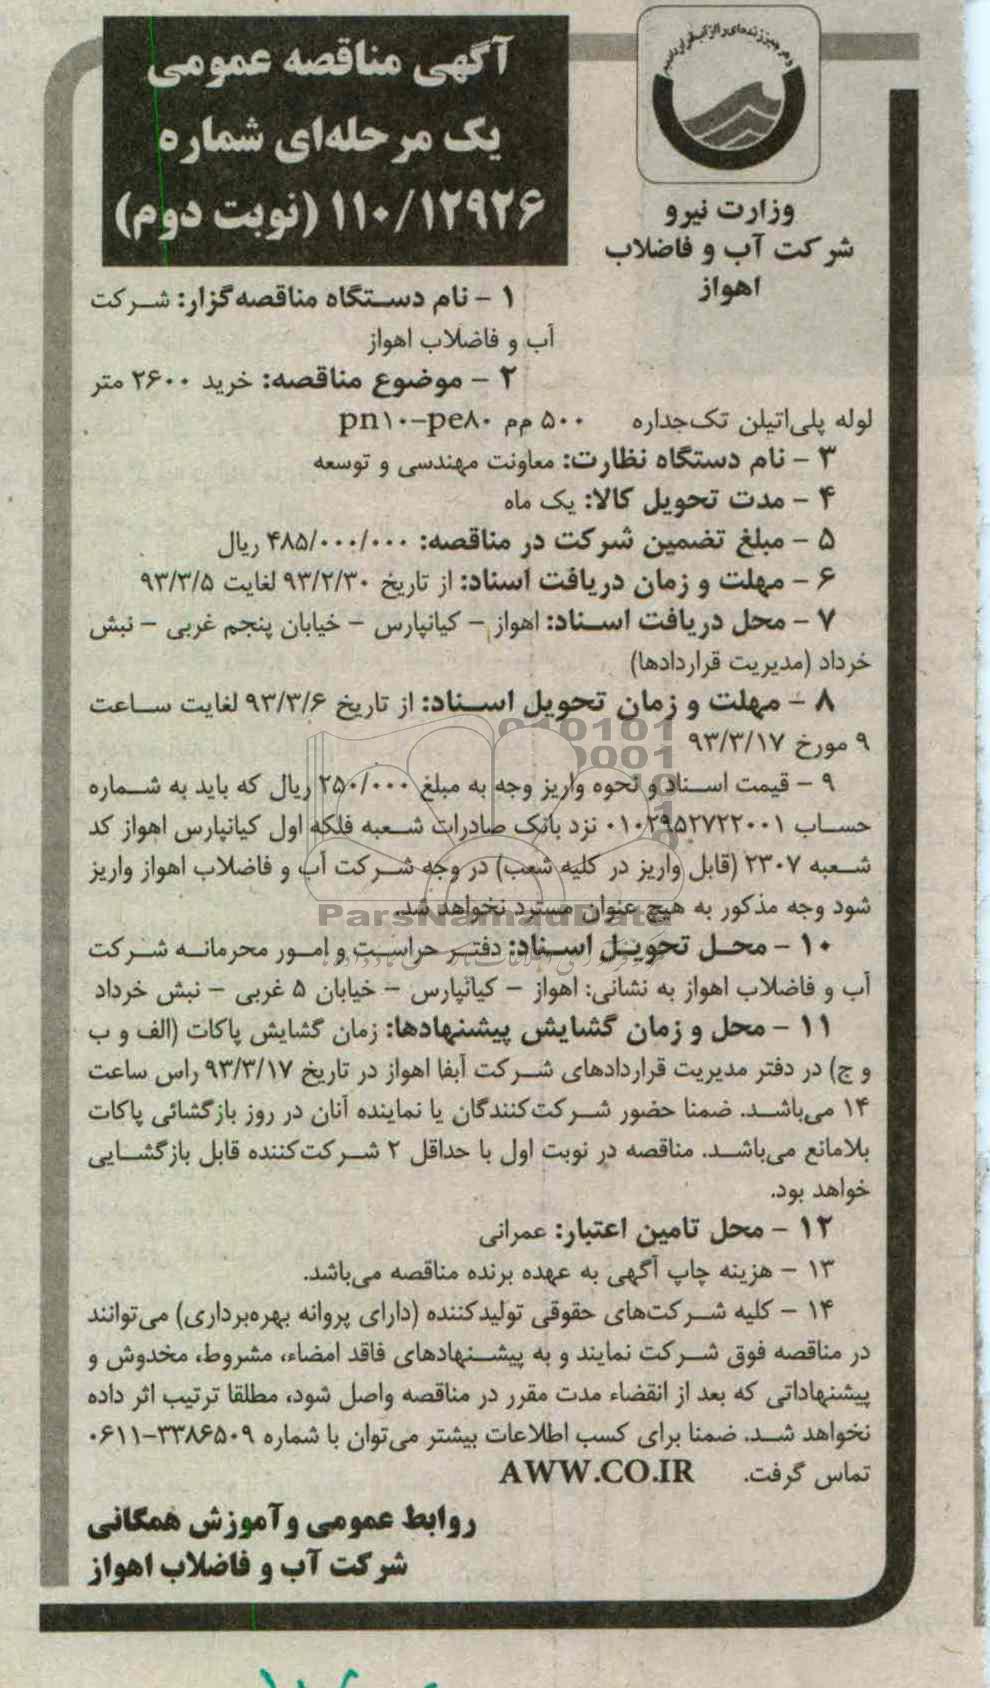 و هر چیز زنده‌ای را از آب قرار دادیم
وزارت نیرو
شرکت آب و فاضلاب
اهواز
آگهی مناقصه عمومی
یک مرحله‌ای شماره
۱۱۰/۱۲۹۲۶ (نوبت دوم)
۱ - نام دستگاه مناقصه‌گزار: شرکت
آب و فاضلاب اهواز
۲ - موضوع مناقصه: خرید ۲۶۰۰ متر
لوله پلی‌اتیلن تک‌جداره ۵۰۰ م‌م pn۱۰-pe۸۰
۳ - نام دستگاه نظارت: معاونت مهندسی و توسعه
۴ - مدت تحویل کالا: یک ماه
۵ - مبلغ تضمین شرکت در مناقصه: ۴۸۵/۰۰۰/۰۰۰ ریال
۶ - مهلت و زمان دریافت اسناد: از تاریخ ۹۳/۲/۳۰ لغایت ۹۳/۳/۵
۷ - محل دریافت اسناد: اهواز - کیانپارس - خیابان پنجم غربی - نبش
خرداد (مدیریت قراردادها)
۸ - مهلت و زمان تحویل اسناد: از تاریخ ۹۳/۳/۶ لغایت ساعت
۹ مورخ ۹۳/۳/۱۷
۹ - قیمت اسناد و نحوه واریز وجه به مبلغ ۲۵۰/۰۰۰ ریال که باید به شماره
حساب ۰۱۰۲۹۵۲۷۲۲۰۰۱ نزد بانک صادرات شعبه فلکه اول کیانپارس اهواز کد
شعبه ۲۳۰۷ (قابل واریز در کلیه شعب) در وجه شرکت آب و فاضلاب اهواز واریز
شود وجه مذکور به هیچ عنوان مسترد نخواهد شد.
ParsNamadData
۱۰ - محل تحویل اسناد: دفتر حراست و امور محرمانه شرکت
آب و فاضلاب اهواز به نشانی: اهواز - کیانپارس - خیابان ۵ غربی - نبش خرداد
۱۱ - محل و زمان گشایش پیشنهادها: زمان گشایش پاکات (الف و ب
و ج) در دفتر مدیریت قراردادهای شرکت آبفا اهواز در تاریخ ۹۳/۳/۱۷ راس ساعت
۱۴ می‌باشد. ضمنا حضور شرکت‌کنندگان یا نماینده آنان در روز بازگشائی پاکات
بلامانع می‌باشد. مناقصه در نوبت اول با حداقل ۲ شرکت‌کننده قابل بازگشایی
خواهد بود.
۱۲ - محل تامین اعتبار: عمرانی
۱۳ - هزینه چاپ آگهی به عهده برنده مناقصه می‌باشد.
۱۴ - کلیه شرکت‌های حقوقی تولیدکننده (دارای پروانه بهره‌برداری) می‌توانند
در مناقصه فوق شرکت نمایند و به پیشنهادهای فاقد امضاء، مشروط، مخدوش و
پیشنهاداتی که بعد از انقضاء مدت مقرر در مناقصه واصل شود، مطلقا ترتیب اثر داده
نخواهد شد. ضمنا برای کسب اطلاعات بیشتر می‌توان با شماره ۳۳۸۶۵۰۹-۰۶۱۱
تماس گرفت. AWW.CO.IR
روابط عمومی و آموزش همگانی
شرکت آب و فاضلاب اهواز